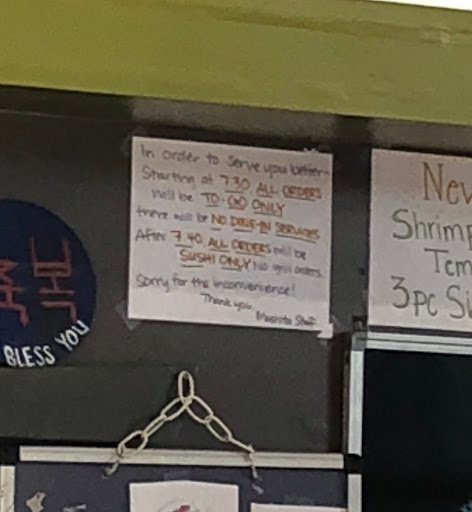 In order to serve you better
Starting at 7:30 ALL ORDERS
will be TO-GO ONLY
there will be NO DINE-IN SERVICES
After 7:40, ALL ORDERS will be
SUSHI ONLY No grill orders
Sorry for the inconvenience!
Thank you,
Staff
New
Shrimp
Tem
3pc Si
BLESS YOU